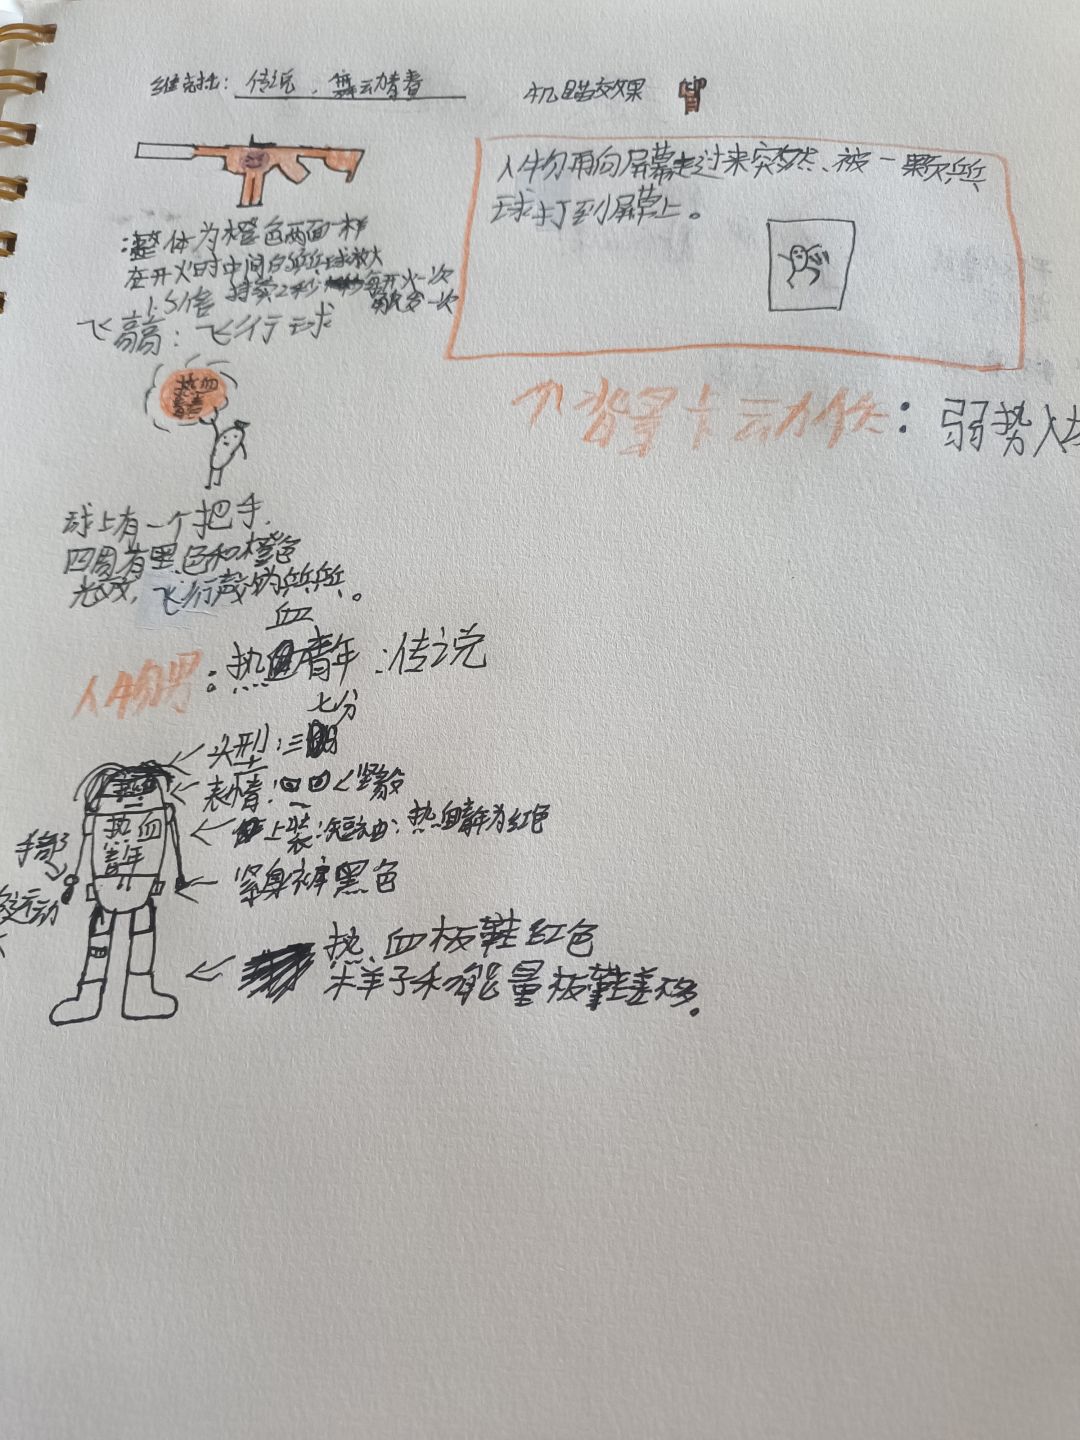 维克托：传说，舞动青春
机瞄效果
人物再向屏幕走过来突然、被一颗乒乓
球打到屏幕上。
：整体为橙色两面一样
在开火时中间的乒乓球放大
1.5倍 持续2秒 每开火一次
放一次
飞高高：飞行球
热血
青春
球上有一个把手.
四周有黑色和橙色
光效，飞行声为乒乓。
背景卡动作：弱势
人物男：热血青年：传说
血
七分
头型：三
表情： 坚毅
上装：短袖：热血青年为红色
热血
青年
手部
运动
紧身裤黑色
热血板鞋红色
样子和能量板鞋差不多。